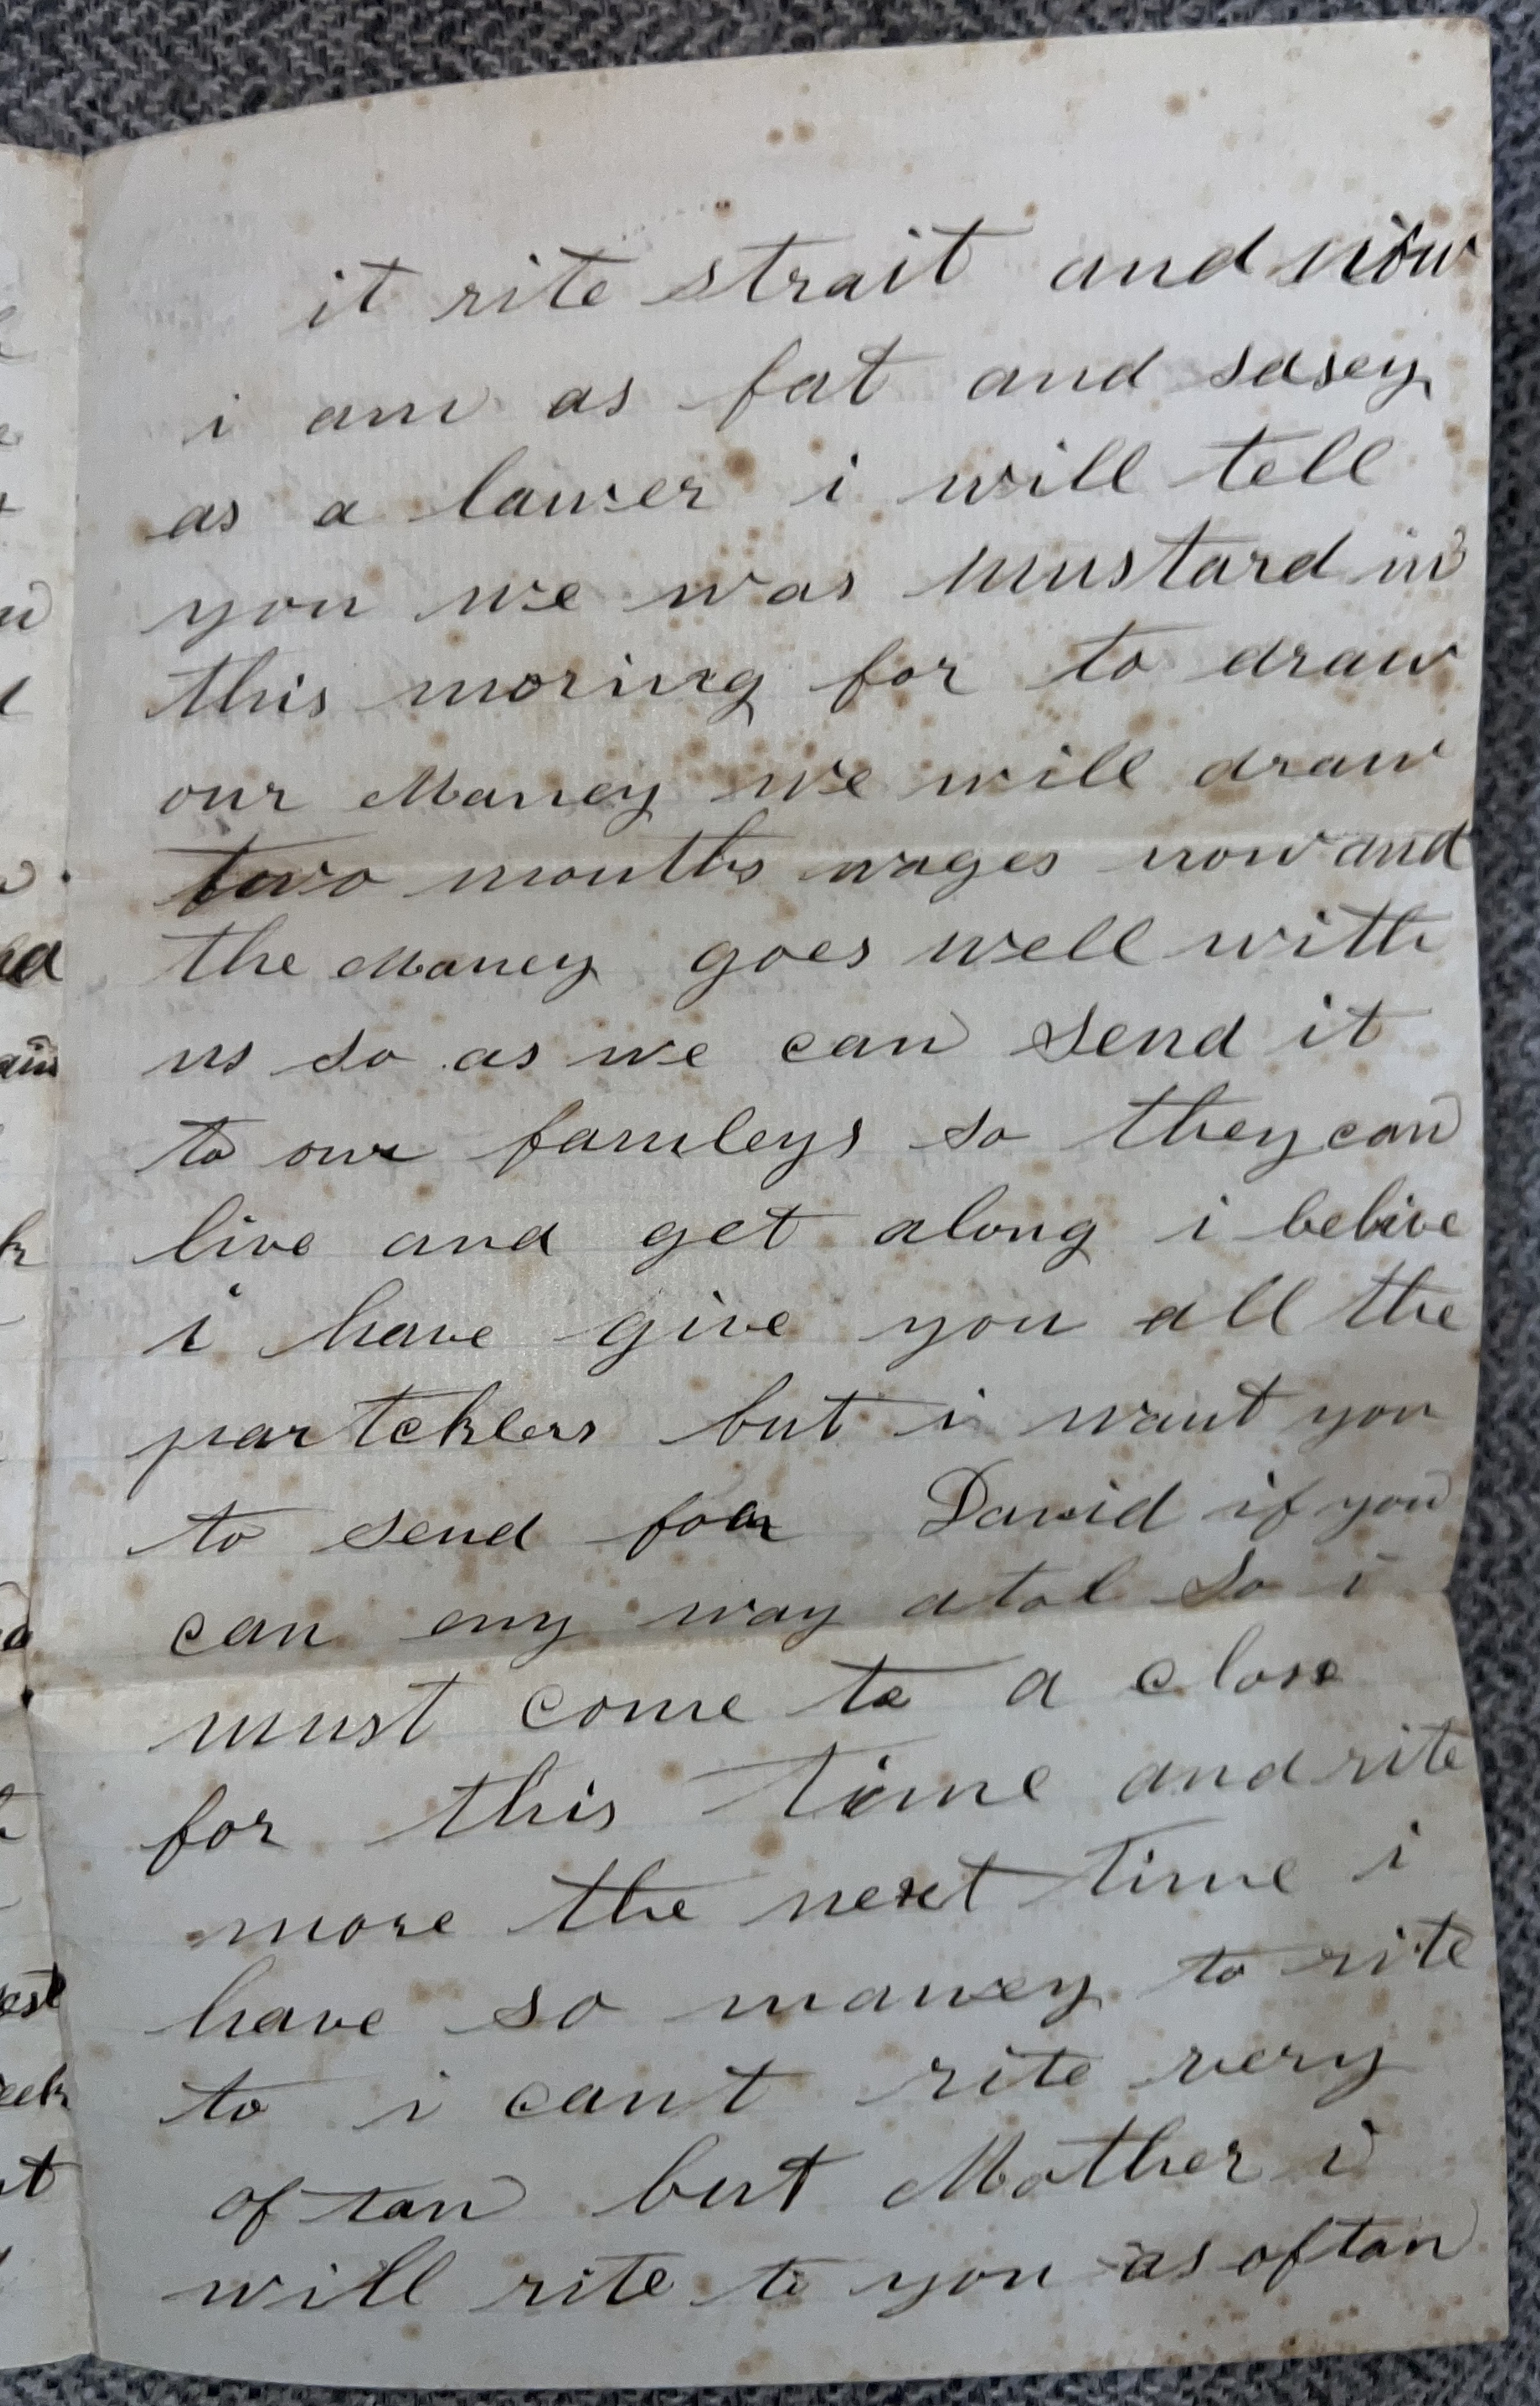 it rite strait and now
i am as fat and sasey
as a lawer i will tell
you we was mustard in
this moring for to draw
our Maney we will draw
two months wages now and
the Maney goes well with
us so as we can send it
to our famleys so they can
live and get along i belive
i have give you all the
parteklers but i want you
to send for David if you
can eny way atol so i
must come to a close
for this time and rite
more the next time i
have so maney to rite
to i cant rite very
oftan but Mother i
will rite to you as oftan